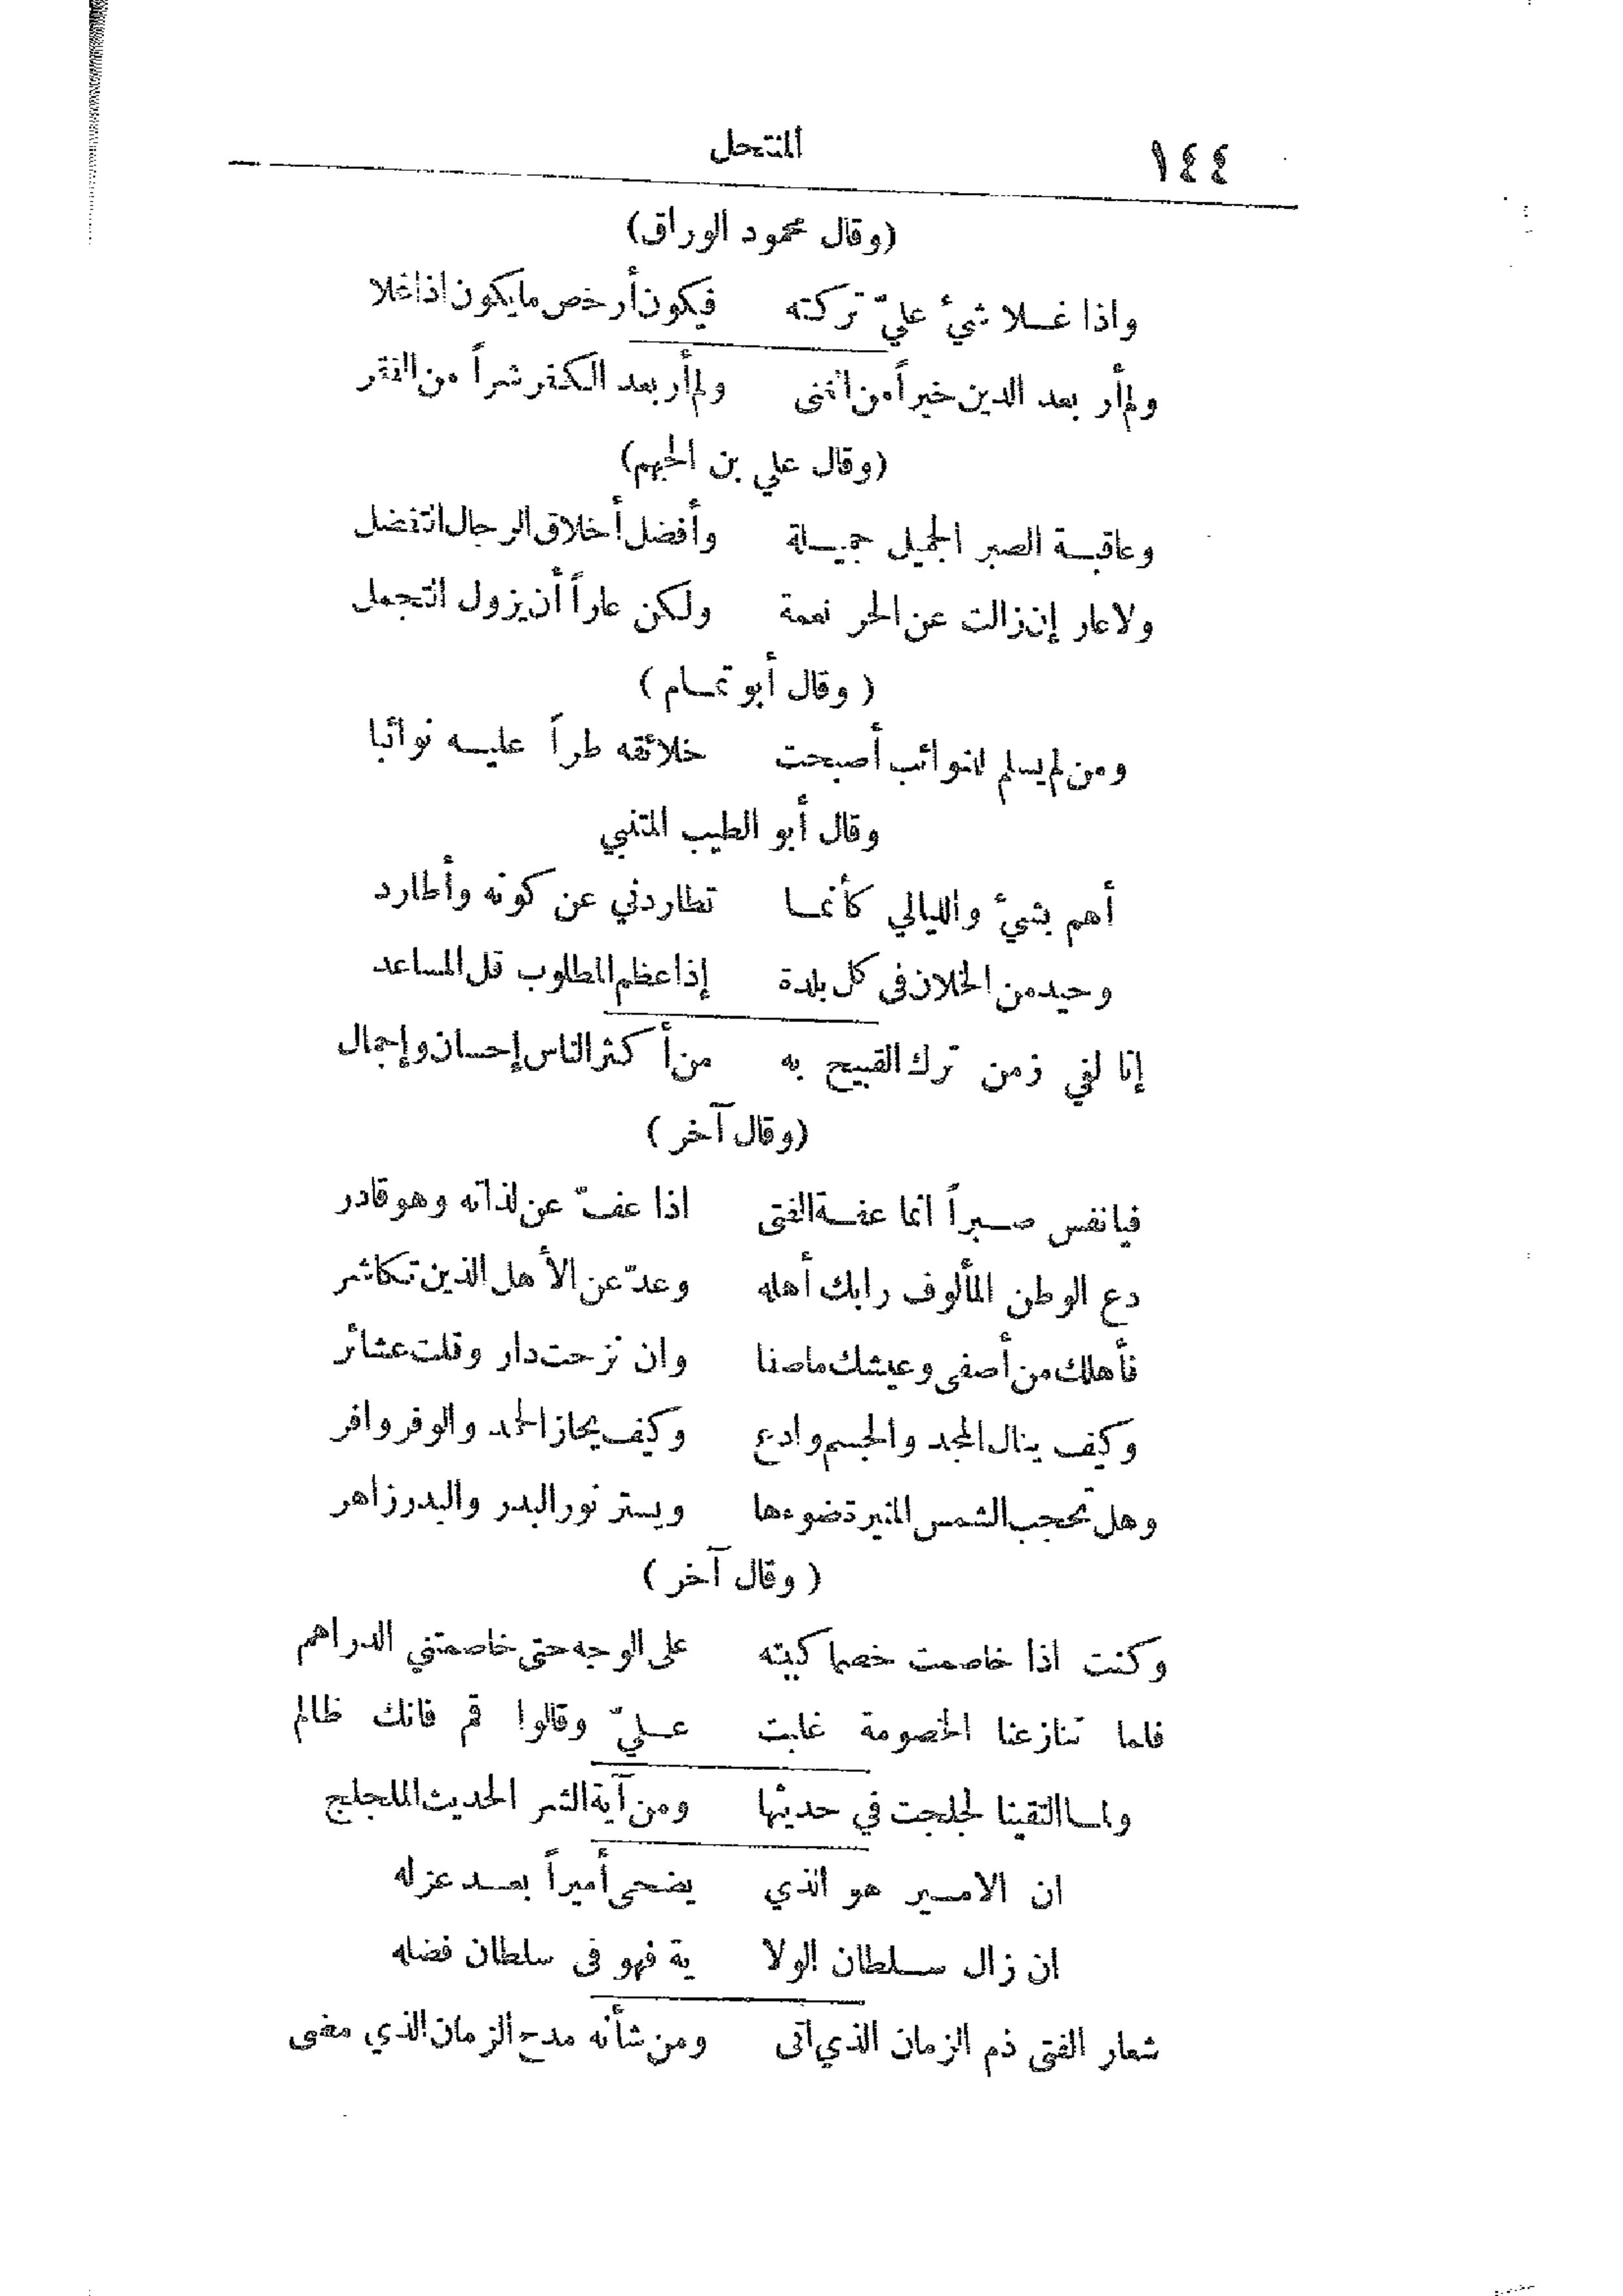 ١٤٤ المنتحل
(وقال محمود الوراق)
واذا غلا شيء عليّ تركته فيكون أرخص ما يكون اذا غلا
ولم أر بعد الدين خيراً من الغنى ولم أر بعد الكفر شراً من الفقر
(وقال علي بن الجهم)
وعاقبة الصبر الجميل جميلة وأفضل أخلاق الرجال التفضل
ولا عار إن زالت عن الحر نعمة ولكن عاراً أن يزول التجمل
(وقال أبو تمام)
ومن لم يسلم للنوائب أصبحت خلائقه طراً عليه نوائبا
وقال أبو الطيب المتنبي
أهم بشيء والليالي كأنما تطاردني عن كونه وأطارد
وحيد من الخلان في كل بلدة إذا عظم المطلوب قل المساعد
إنا لفي زمن ترك القبيح به من أكثر الناس إحسان وإجمال
(وقال آخر)
فيا نفس صبراً انما عفة الفتى اذا عفّ عن لذاته وهو قادر
دع الوطن المألوف رابك أهله وعدّ عن الأهل الذين تكاشر
فأهلك من أصفى وعيشك ما صفا وان نزحت دار وقلت عشائر
وكيف ينال المجد والجسم وادع وكيف يحاز الحمد والوفر وافر
وهل تحجب الشمس المنيرة ضوءها ويستر نور البدر والبدر زاهر
(وقال آخر)
وكنت اذا خاصمت خصما كببته على الوجه حتى خاصمتني الدراهم
فلما تنازعنا الخصومة غلبت عليّ وقالوا قم فانك ظالم
ولما التقينا لجلجت في حديثها ومن آية الشر الحديث الملجلج
ان الامير هو الذي يضحى أميراً بعد عزله
ان زال سلطان الولا ية فهو في سلطان فضله
شعار الفتى ذم الزمان الذي اتى ومن شأنه مدح الزمان الذي مضى